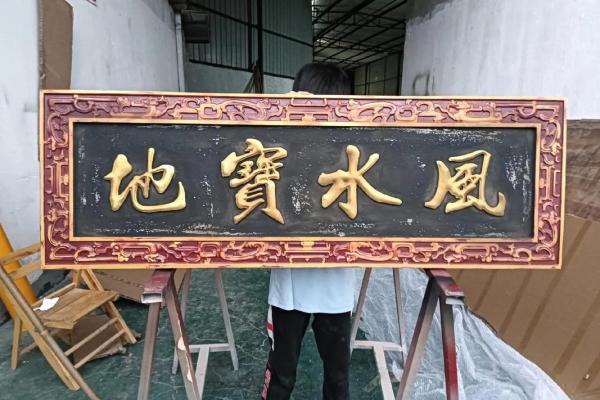 風水寶地